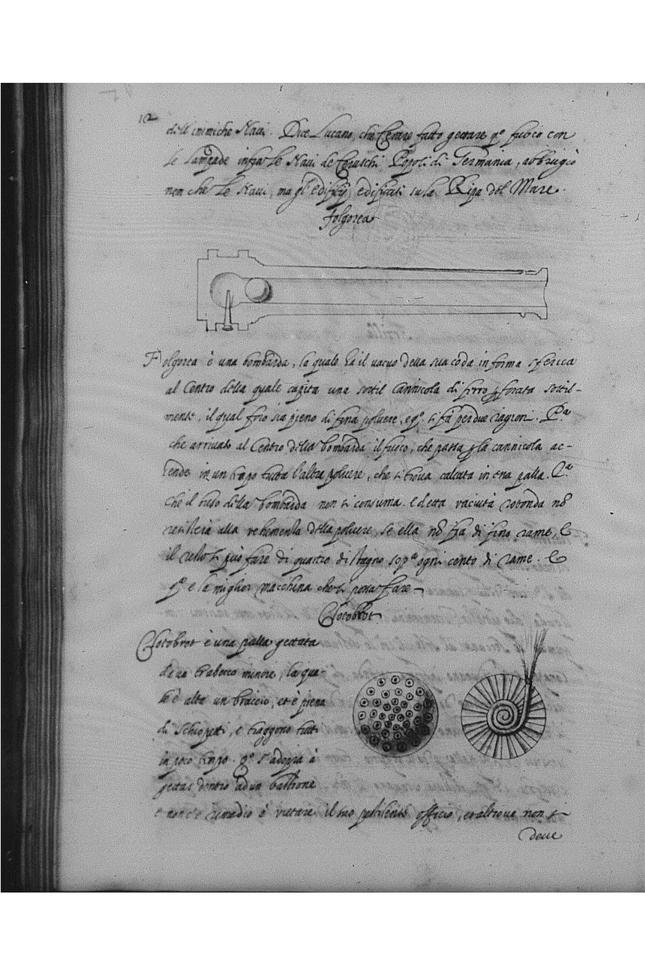 12
dell'inimiche Naui. Dice Lucano, che Cesare fatto gettare qº fuoco con
le lampade infra le Naui de Ceruschi Popoli di Germania, abbrugiò
non che le Naui, ma gl'edificij edificati su la Riga del Mare.
folgorea
Folgorea è una bombarda, la quale ha il uacuo della sua coda in forma sferica
al Centro della quale capita una sottil Cannicola di ferro pforata sottil-
mente, il qual foro sia pieno di fina poluere, e qº si fa per due ragioni. Pª
che arriuato al Centro della bombarda il fuoco, che passa p la cannicola ac-
cende in un tempo tutta l'altra poluere, che si troua calcata in tra palla.
che il buso della bombarda non si consuma. e detta vacuità rotonda nō
resisterà alla vehementia della poluere, se ella nō ha di fino rame, e
il resto si può fare di quattro di stagno sopª ogni cento di rame. e
qª e la miglior macchina che si possa fare
Clotobrot
Clotobrot è una palla gettata
da un trabocco minore, la qua
le è alta un braccio, et è piena
di Schiopetti, e traggono tutti
in poco tempo. qº s'adopra à
gettar dentro ad un bastione
e non c'è rimedio è vietare il suo pestilente officio, et altroue non si
doue